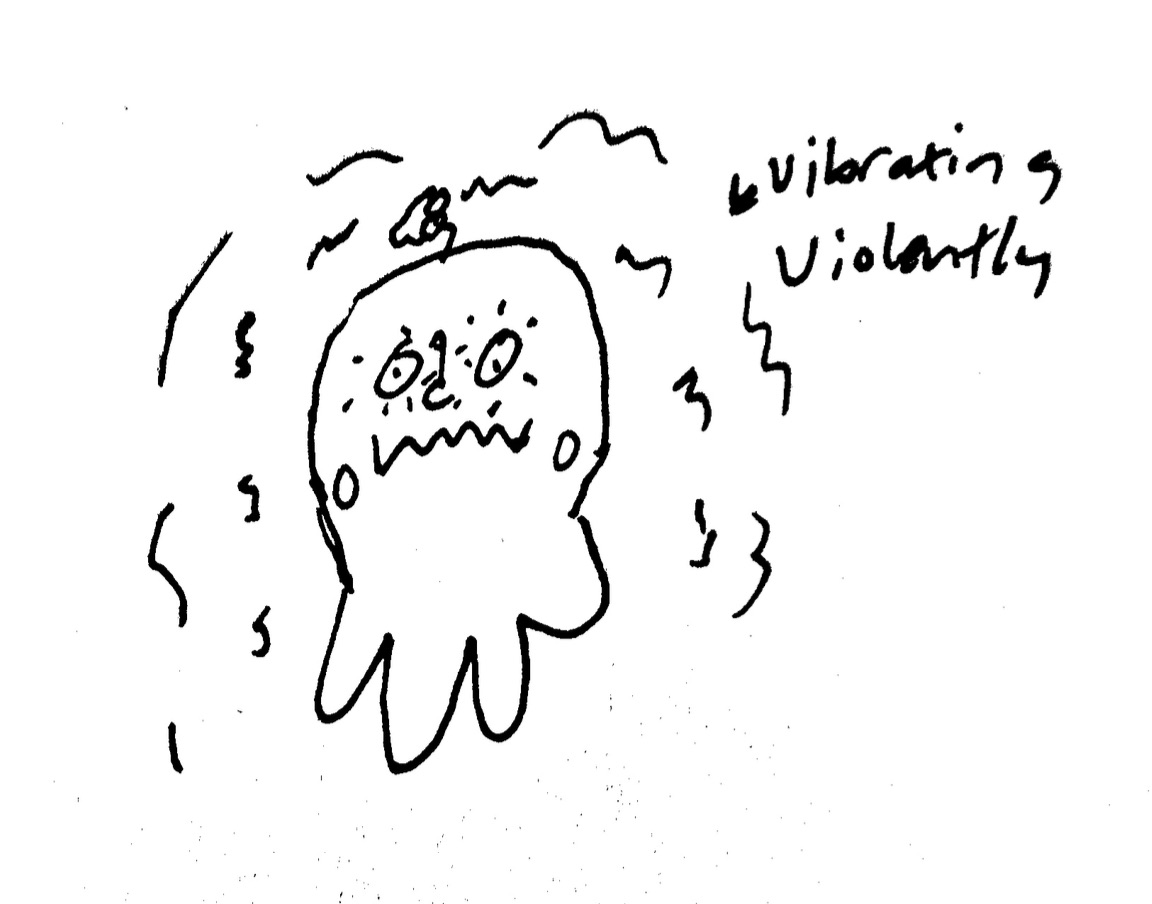 vibrating
violantly